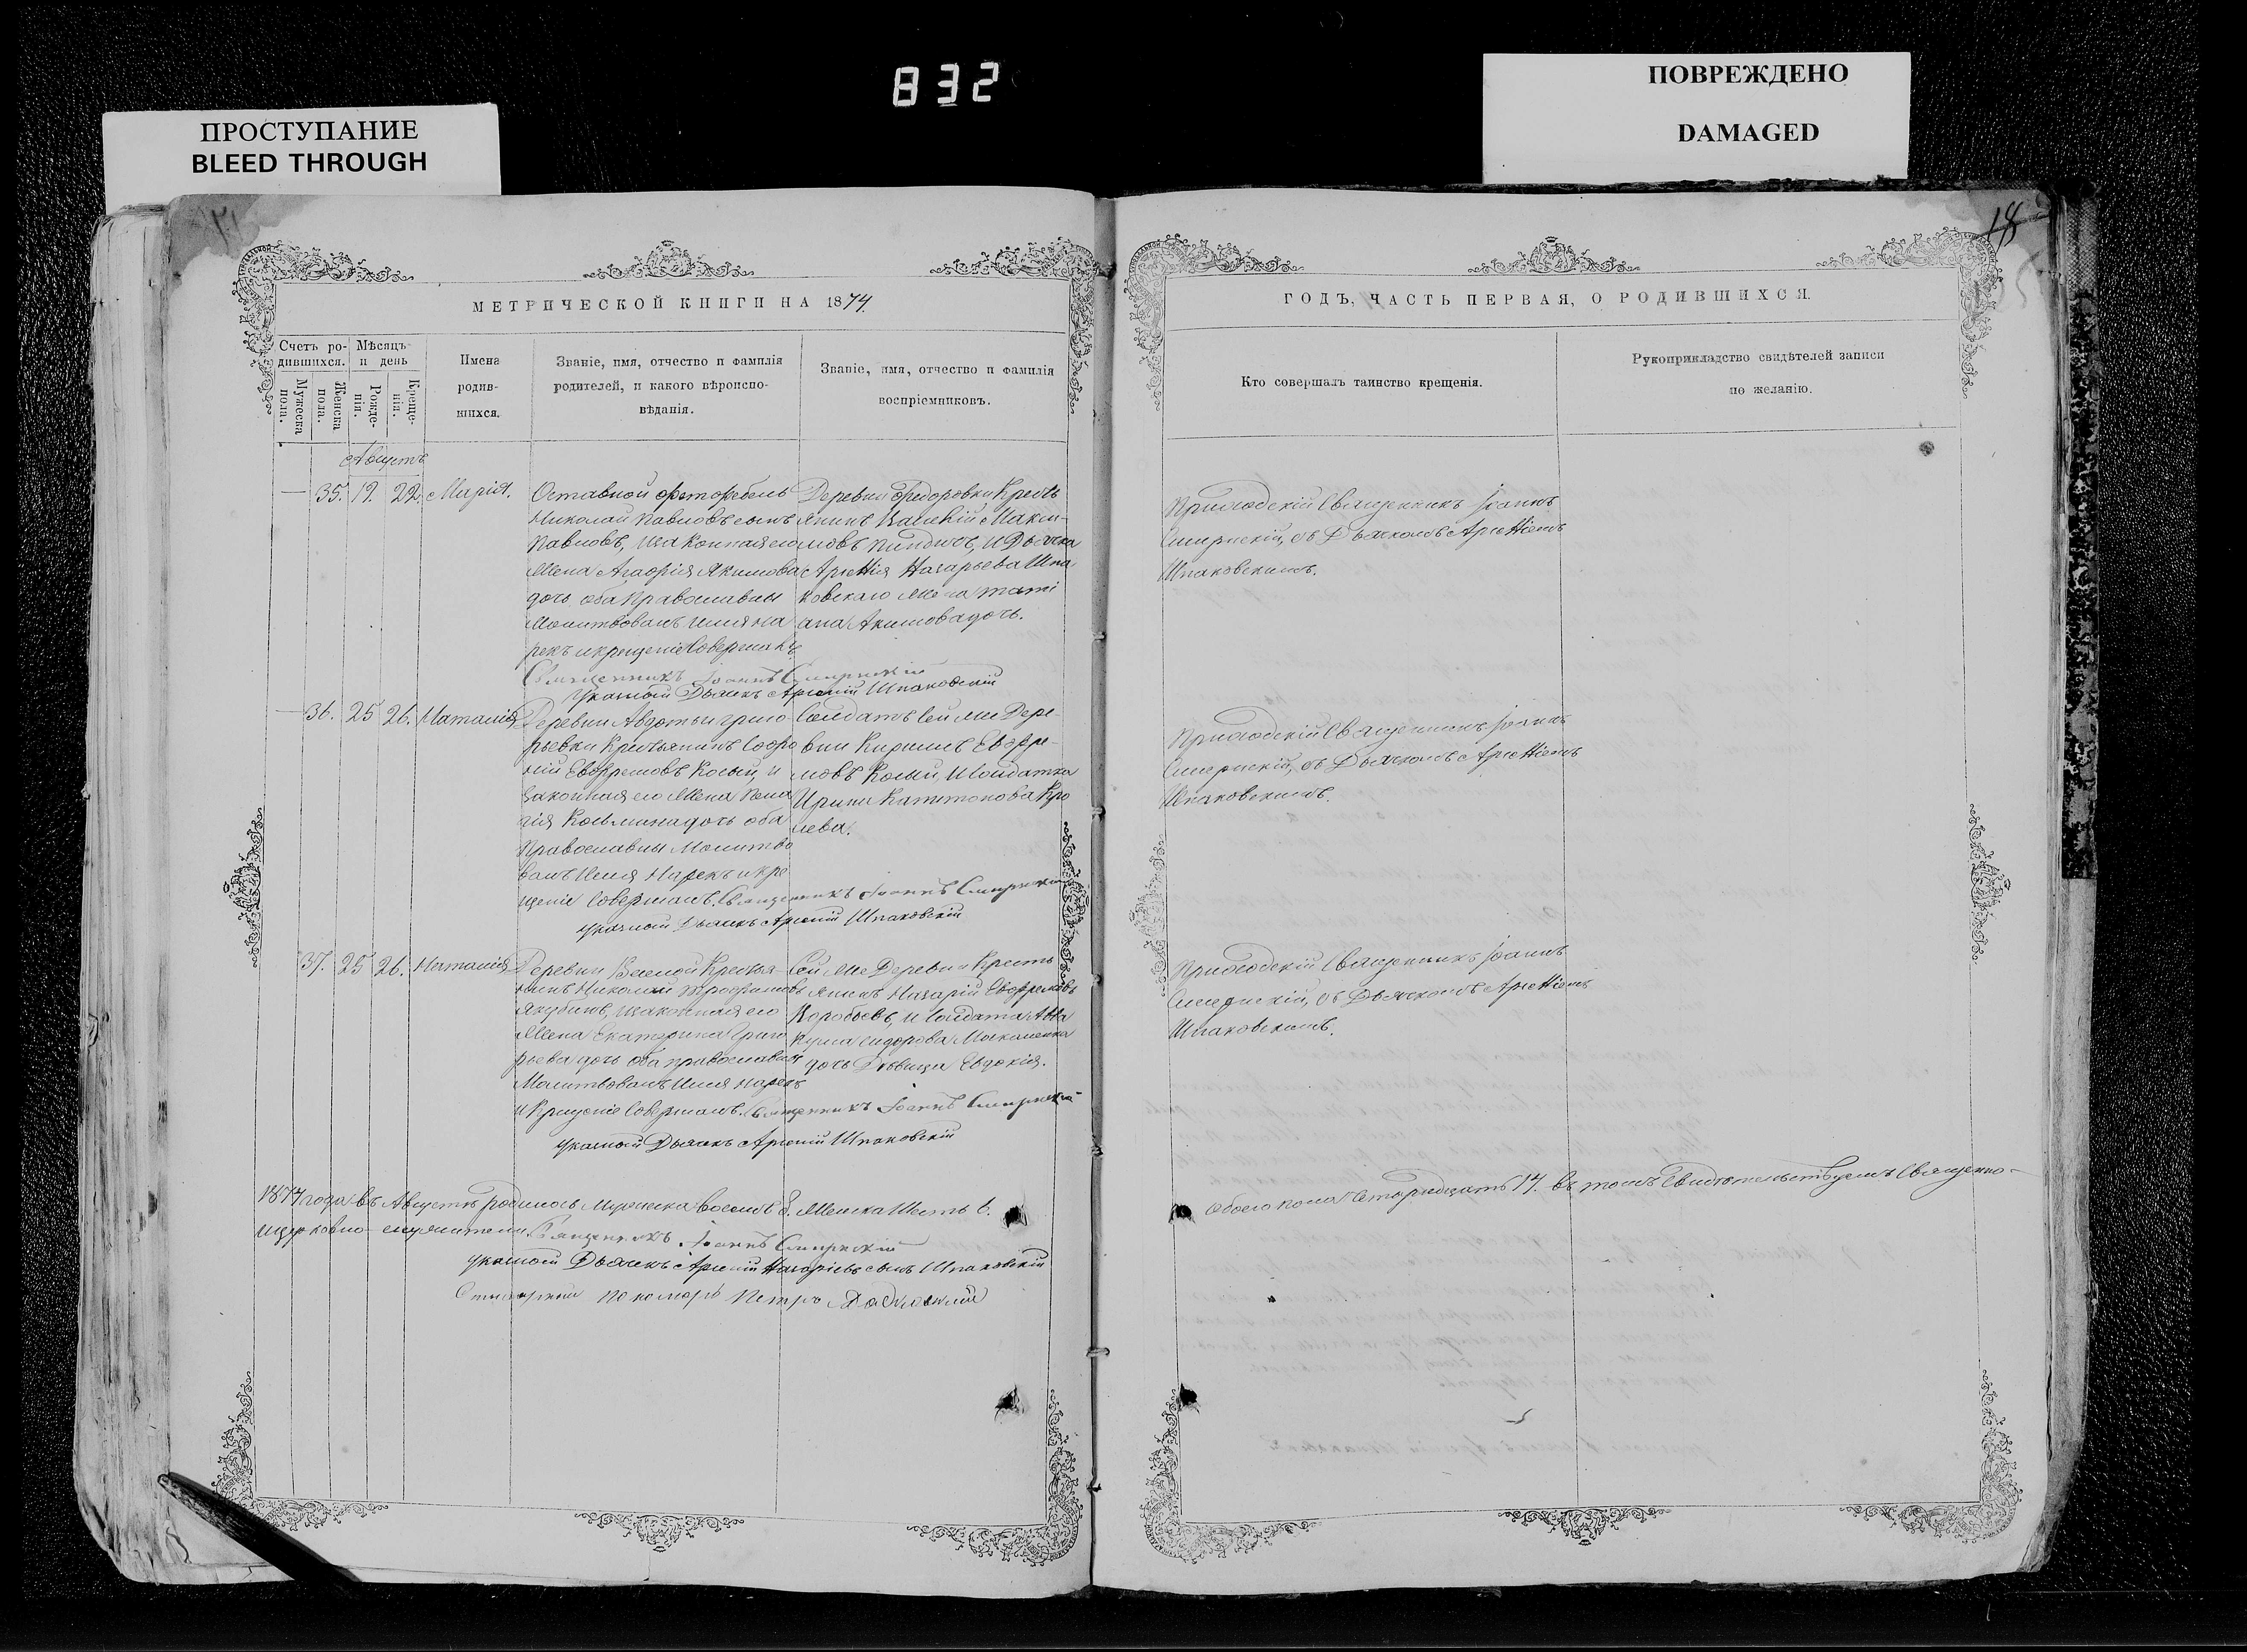 832
ПРОСТУПАНИЕ
BLEED THROUGH
ПОВРЕЖДЕНО
DAMAGED
18
МЕТРИЧЕСКОЙ КНИГИ НА 1874.
ГОДЪ, ЧАСТЬ ПЕРВАЯ, О РОДИВШИХСЯ.
Счетъ ро-
дившихся.
Мужеска
пола.
Женска
пола.
Мѣсяцъ
и день
Рожде-
нія.
Креще-
нія.
Имена
родив-
шихся.
Званіе, имя, отчество и фамилія
родителей, и какого вѣроиспо-
вѣданія.
Званіе, имя, отчество и фамилія
воспріемниковъ.
Кто совершалъ таинство крещенія.
Рукоприкладство свидѣтелей записи
по желанію.
Августъ
— 35. 19. 22. Марія.
Николай Павловъ сынъ
Павловъ, и законная его
жена Агафія Якимова
дочь оба Православны
Молитвовалъ имя на
рекъ и крещеніе совершалъ
Священникъ Іоаннъ
Указной Дьячекъ Арсеній Шпаковскій
Деревни Федоровки Кресть
янинъ Василій Макси-
мовъ и Дьячка
Арсенія Назарьева Шпа
ковскаго жена Тати
ана Акимова дочь.
Приходскій Священникъ Іоаннъ
съ Дьячкомъ Арсеніемъ
Шпаковскимъ.
— 36. 25 26. Наталія
Деревни Авдотьи Григо
рьевки Крестьянинъ Софро
ній Евфремовъ Косый, и
законная его жена Пела
гія Косьмина дочь оба
Православны Молитво
валъ Имя Нарекъ и кре
щеніе совершалъ. Священникъ Іоаннъ
Указной Дьячекъ Арсеній Шпаковскій
Солдатъ сей же Дере-
вни Кириллъ Евфре-
мовъ Косый, и солдатка
Ирина Капитонова
Приходскій Священникъ Іоаннъ
съ Дьячкомъ Арсеніемъ
Шпаковскимъ.
37. 25 26. Наталія
Деревни Крестья
нинъ Николай Трофимовъ
Якубинъ, и законная его
жена Екатерина Григо
рьева дочь оба православны
Молитвовалъ Имя Нарекъ
и Крещеніе Совершалъ. Священникъ Іоаннъ
Указной Дьячекъ Арсеній Шпаковскій
Сей же Деревни Кресть
янинъ Назарій Евфремовъ
Воробьевъ, и солдата Авва
кума Сидорова
дочь Дѣвица Евдокія.
Приходскій Священникъ Іоаннъ
съ Дьячкомъ Арсеніемъ
Шпаковскимъ.
1874 года въ Августѣ родилось Мужеска восемь 8. Женска Шесть 6.
обоего пола Четырнадцать 14. въ томъ Свидѣтельствуемъ Священно-
и церковно- служители Священникъ Іоаннъ
Указной Дьячекъ Арсеній Назаріевъ сынъ Шпаковскій
Пономарь Петръ